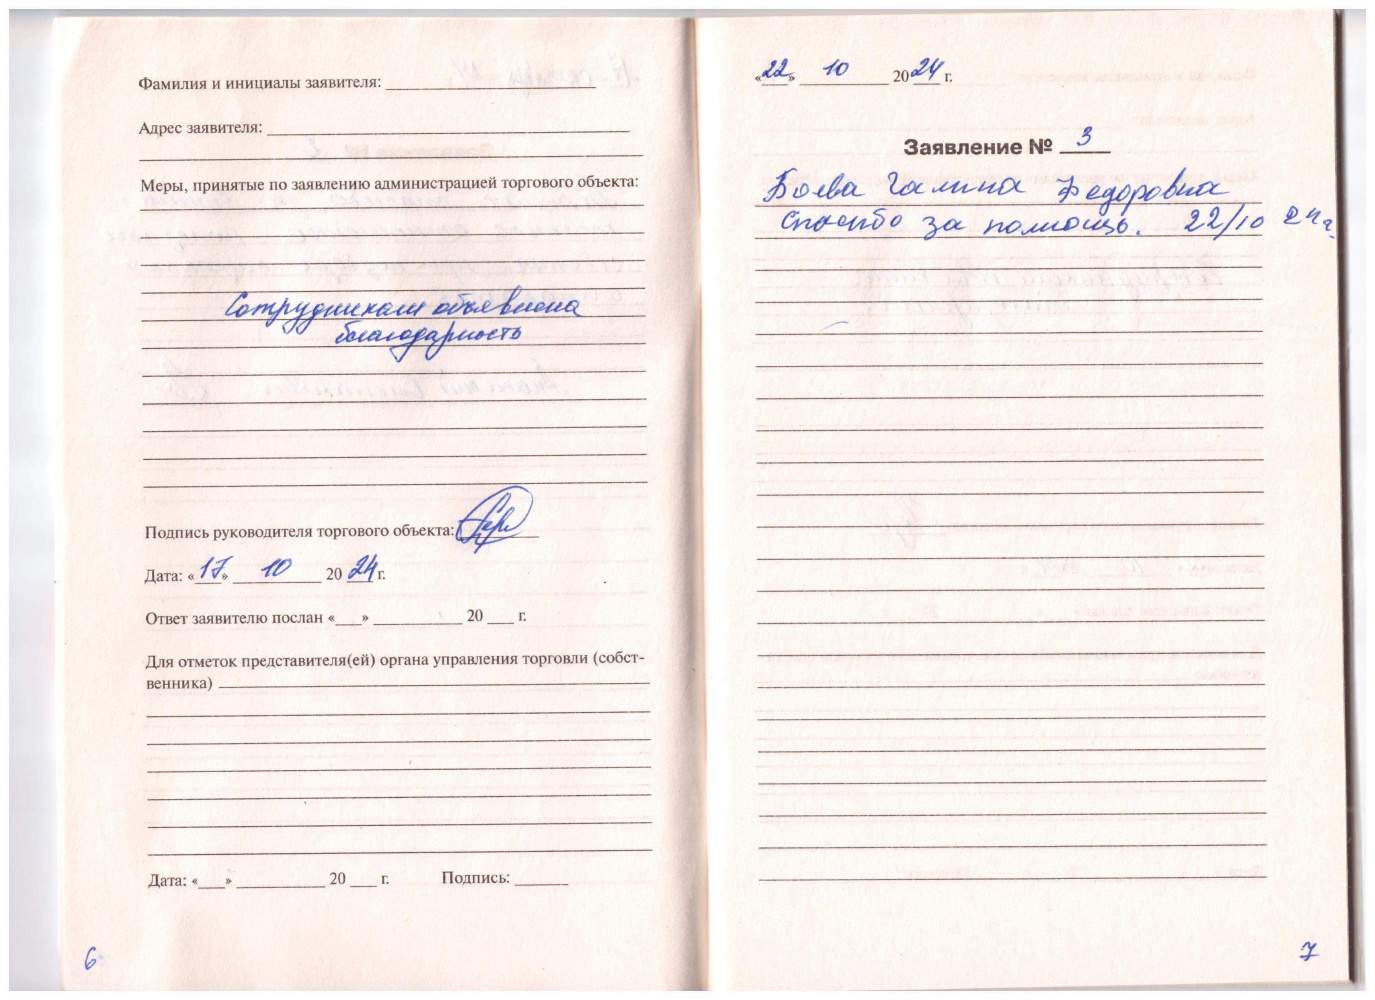 Фамилия и инициалы заявителя: ____
Адрес заявителя: ____
Меры, принятые по заявлению администрацией торгового объекта:
Сотрудникам объявлена
благодарность
Подпись руководителя торгового объекта: ____
Дата: «17» 10 20 24 г.
Ответ заявителю послан «___» ____ 20 ___ г.
Для отметок представителя(ей) органа управления торговли (собст-
венника) ____
Дата: «___» ____ 20 ___ г. Подпись: ____
6
«22» 10 20 24 г.
Заявление № 3
Боева Галина Федоровна
Спасибо за помощь. 22/10 24 г.
7